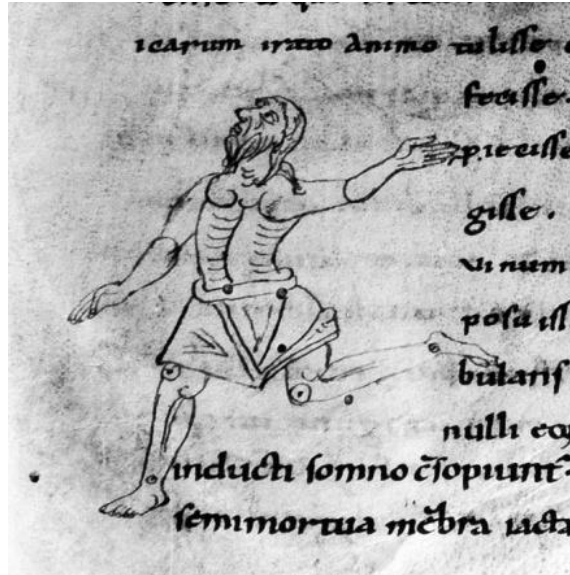 icarum irato animo tulisse
fecisse.
gisse.
vi num
posu iss
bularis
nulli
inducti somno c̄sopiunt᷑
semimortua mēbra iacta